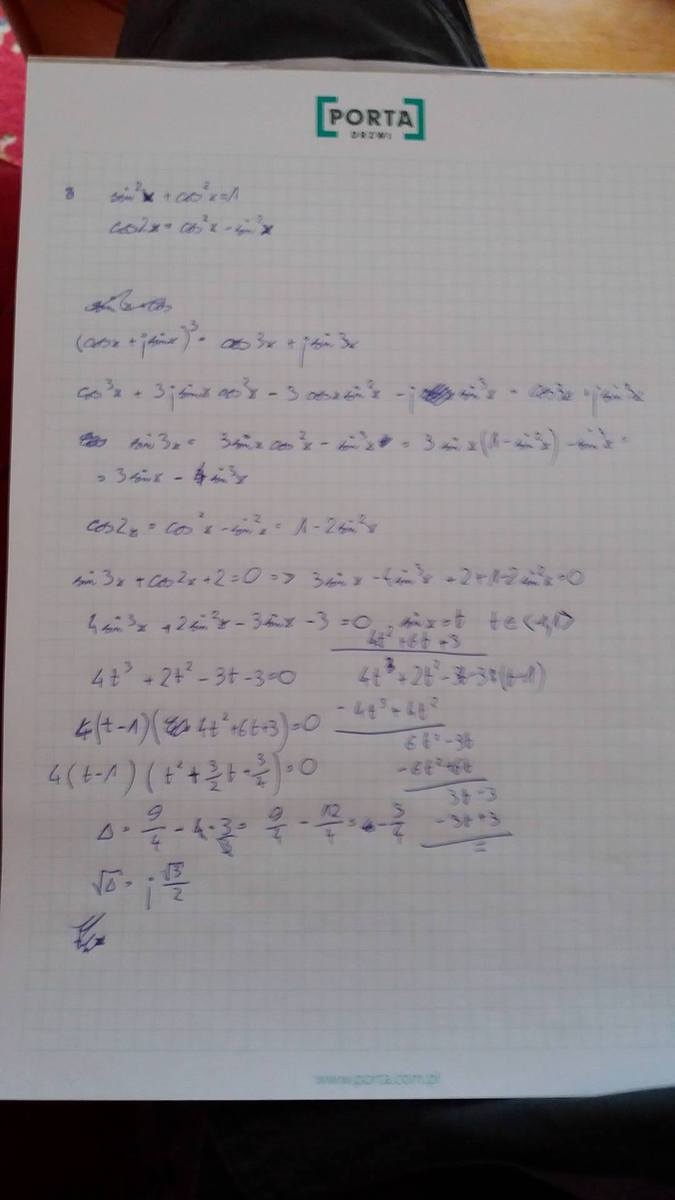 PORTA
DRZWI
8 sin²x + cos²x = 1
cos2x = cos²x - sin²x
(cosx + jsinx)³ = cos3x + jsin3x
cos³x + 3jsinx cos²x - 3cosx sin²x - j sin³x = cos3x + jsin3x
sin3x = 3sinx cos²x - sin³x = 3sinx(1-sin²x) - sin³x =
= 3sinx - 4sin³x
cos2x = cos²x - sin²x = 1 - 2sin²x
sin3x + cos2x + 2 = 0 => 3sinx - 4sin³x + 2 + 1 - 2sin²x = 0
4sin³x + 2sin²x - 3sinx - 3 = 0 sinx = t t ∈ <-1,1>
4t² + 6t + 3
4t³ + 2t² - 3t - 3 = 0 4t³ + 2t² - 3t - 3 : (t-1)
-4t³ + 4t²
4(t-1)( 4t² + 6t + 3) = 0
6t² - 3t
4(t-1)(t² + 3/2 t + 3/4) = 0 -6t² + 6t
3t - 3
Δ = 9/4 - 4 · 3/4 = 9/4 - 12/4 = -3/4 -3t + 3
=
√Δ = j √3/2
www.porta.com.pl